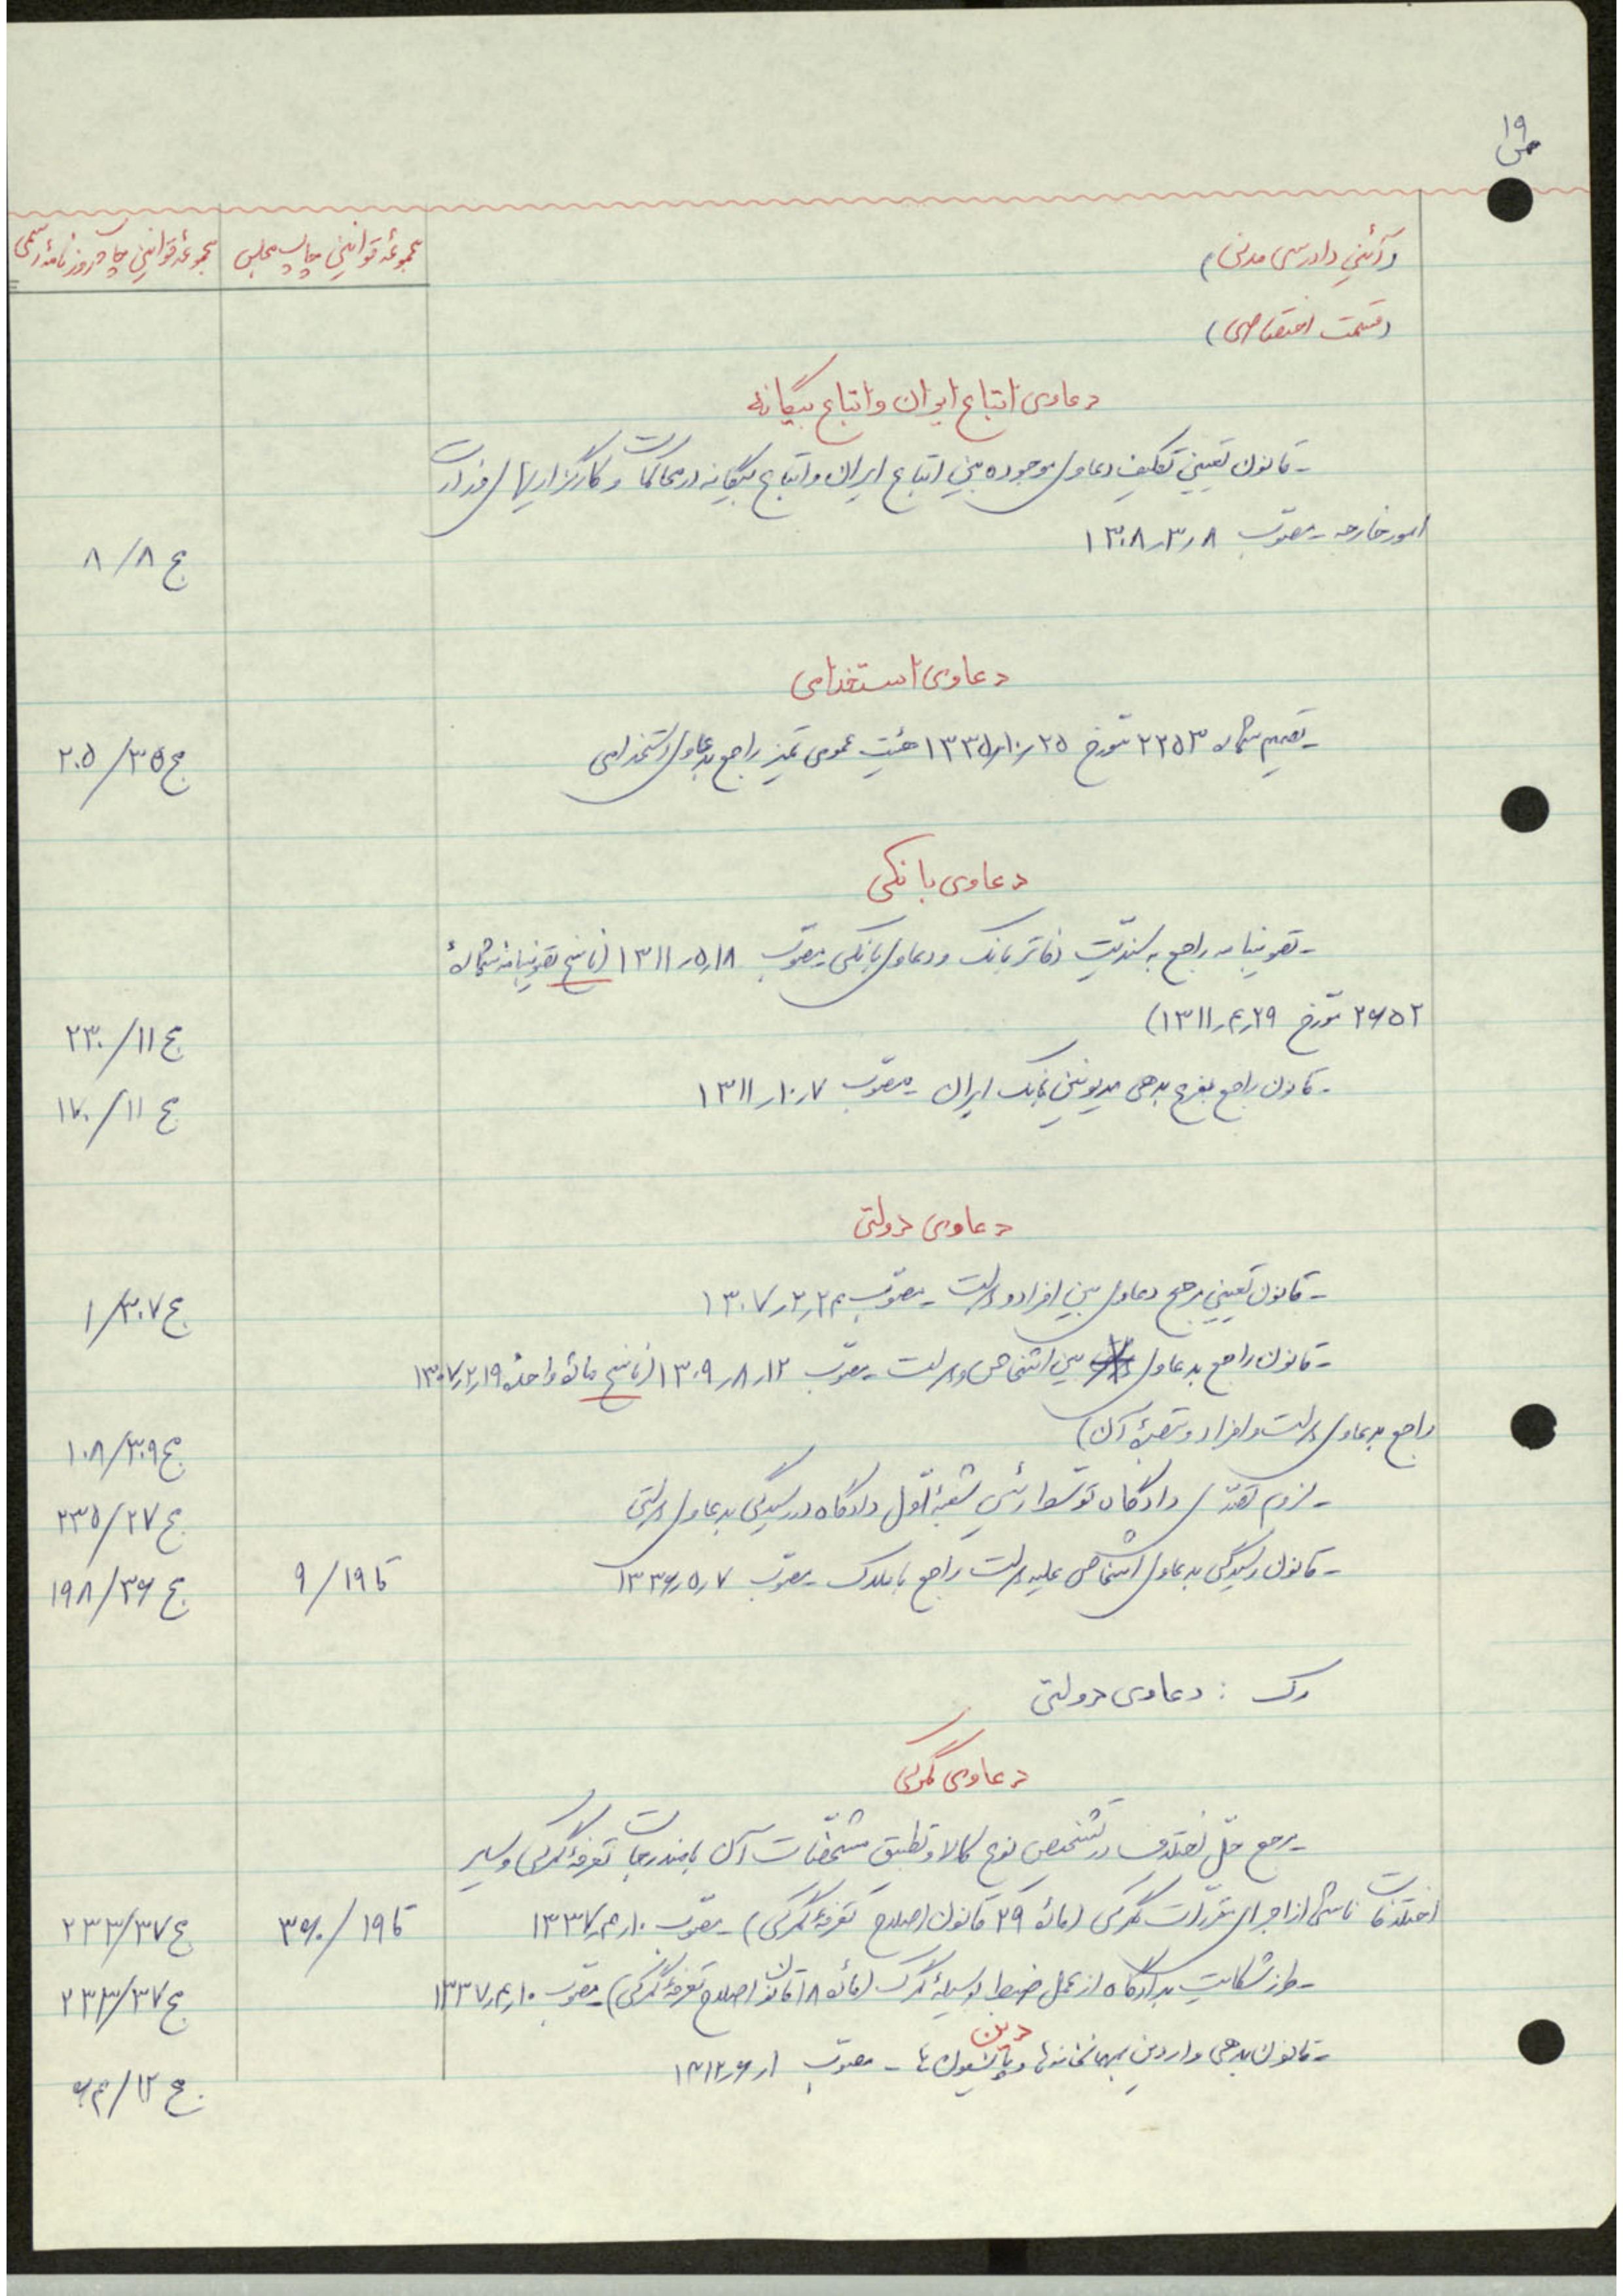 ص ۱۹
مجموعهٔ قوانین چاپ روزنامهٔ رسمی
مجموعهٔ قوانین چاپ مجلس
(آئین دادرسی مدنی)
(قسمت اختصاصی)
دعاوی اتباع ایران و اتباع بیگانه
- قانون تعیین تکلیف دعاوی موجوده بین اتباع ایران و اتباع بیگانه در محاکمات و کارگزاریهای وزارت
امور خارجه - مصوّب ۱۳۰۸٫۳٫۸
ج ۸/۸
دعاوی استخدامی
- تصمیم شماره ۲۲۵۳ مورّخ ۱۳۳۵٫۱۰٫۲۵ هیئت عمومی تمیز راجع بدعاوی استخدامی
ج ۳۵/۲۰۵
دعاوی بانکی
- تصویبنامه راجع به سندیّت دفاتر بانک و دعاوی بانکی - مصوّب ۱۳۱۱٫۵٫۱۸ (ناسخ تصویبنامه شمارهٔ
۲۶۵۲ مورّخ ۱۳۱۱٫۴٫۲۹)
ج ۱۱/۲۳۰
- قانون راجع بفرع بدهی مدیونین ببانک ایران - مصوّب ۱۳۱۱٫۱۰٫۷
ج ۱۱/۱۷۰
دعاوی دولتی
- قانون تعیین مرجع دعاوی بین افراد و دولت - مصوّب ۱۳۰۷٫۲٫۲۴
ج ۳۰۷/۱
- قانون راجع بدعاوی بین اشخاص و دولت - مصوّب ۱۳۰۹٫۸٫۱۲ (ناسخ مادهٔ واحدهٔ ۱۳۰۷٫۲٫۱۹
راجع بدعاوی دولت و افراد و تبصرهٔ آن)
ج ۳۰۹/۱۰۸
- لزوم تصدّی دادگاه توسط رئیس شعبهٔ اوّل دادگاه در رسیدگی بدعاوی دولتی
ج ۲۷/۲۳۵
- قانون رسیدگی بدعاوی اشخاص علیه دولت راجع باملاک - مصوّب ۱۳۳۶٫۵٫۷
تا ۱۹/۹
ج ۳۶/۱۹۸
رک : دعاوی دولتی
دعاوی گمرکی
- مرجع حلّ اختلاف در تشخیص نوع کالا و تطبیق مشخّصات آن با مندرجات تعرفهٔ گمرکی و سایر
اختلافات ناشی از اجرای مقرّرات گمرکی (مادهٔ ۲۹ قانون اصلاح تعرفهٔ گمرکی) - مصوّب ۱۳۳۷٫۴٫۱۰
تا ۱۹/۳۶۰
ج ۳۷/۲۳۳
- طرز شکایت بدادگاه از عمل ضبط بوسیلهٔ گمرک (مادهٔ ۱۸ قانون اصلاح تعرفهٔ گمرکی) - مصوّب ۱۳۳۷٫۴٫۱۰
ج ۳۷/۲۳۳
دین
- قانون بدهی واردین بمهمانخانه‌ها و پانسیون‌ها - مصوّب ۱۳۱۲٫۶٫۱
ج ۱۲/۶۴